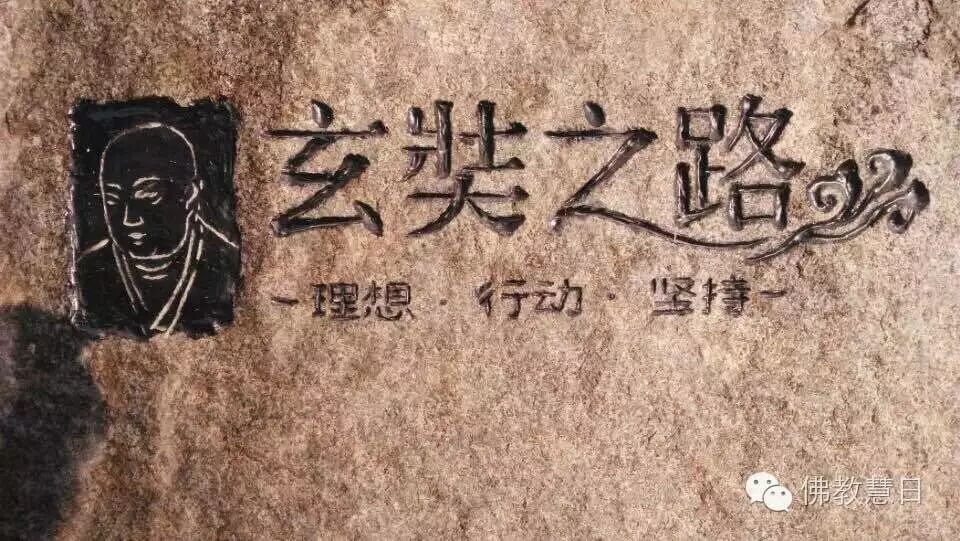 玄奘之路
－理想·行动·坚持－
佛教慧日